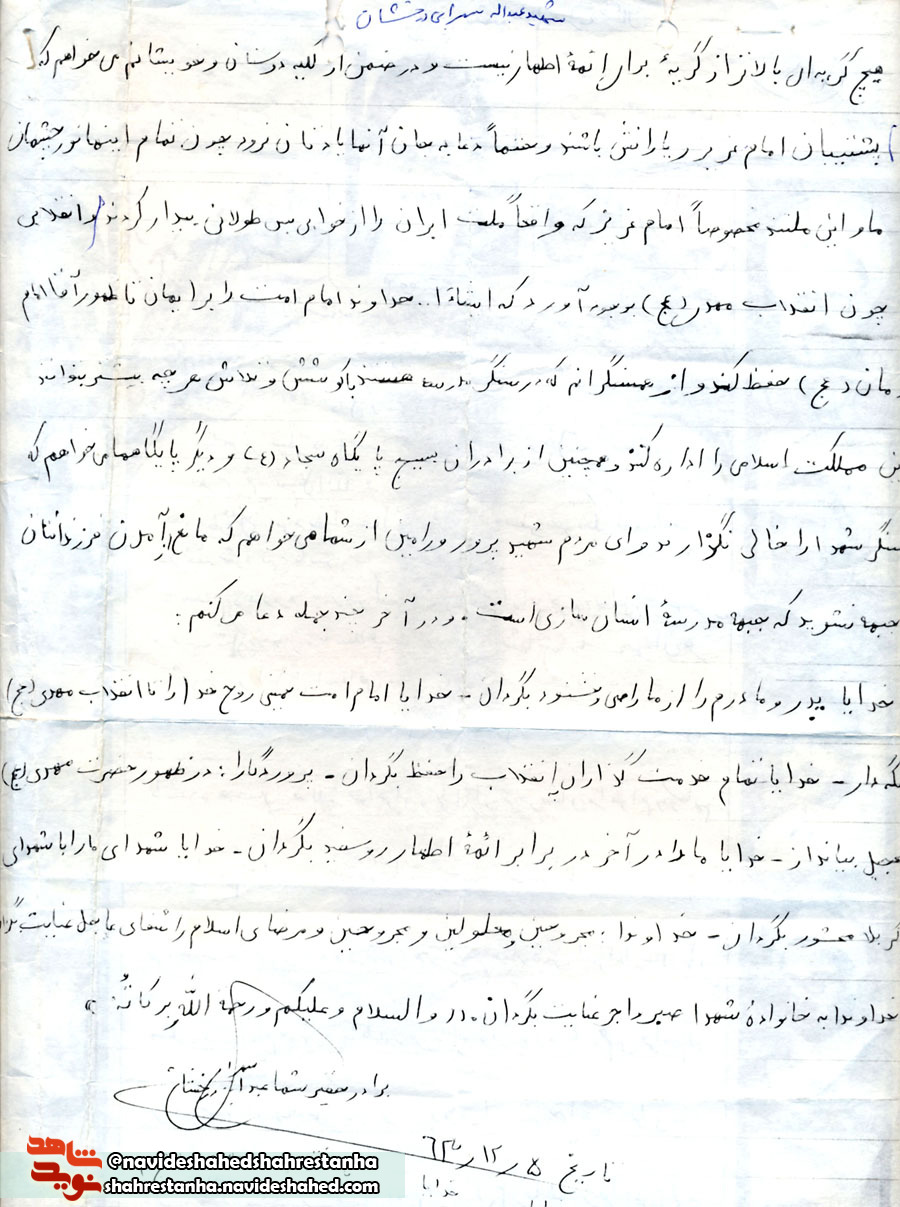 شهید عبداله سهرابی درخشان
هیچ گریه‌ای بالاتر از گریهٔ برای ائمهٔ اطهار نیست و در ضمن از کلیه دوستان و خویشانم می‌خواهم که
پشتیبان امام عزیز و یارانش باشند و حتماً دعا به جان آنها یادتان نرود چون تمام اینها نور چشمان
ما و این ملتند مخصوصاً امام عزیز که واقعاً ملت ایران را از خوابی بس طولانی بیدار کردند و انقلابی
چون انقلاب مهدی (عج) بوجود آورد که انشاءا... خداوند امام امت را برایمان تا ظهور آقا امام
زمان (عج) حفظ کند و از همسنگرانم که در سنگر مدرسه هستند با کوشش و تلاش هر چه بیشتر بتوانند
این مملکت اسلامی را اداره کنند و همچنین از برادران بسیج پایگاه سجاد (ع) و دیگر پایگاهها می‌خواهم که
سنگر شهدا را خالی نگذارند و ای مردم شهید پرور ورامین از شما می‌خواهم که مانع آمدن فرزندانتان
جبهه نشوید که جبهه مدرسهٔ انسان سازی است. و در آخر چند جمله دعا می‌کنم:
خدایا پدر و مادرم را از ما راضی و خشنود بگردان - خدایا امام امت خمینی روح خدا را تا انقلاب مهدی (عج)
نگه‌دار - خدایا تمام خدمت گذاران انقلاب را حفظ بگردان - پروردگارا: در ظهور حضرت مهدی (عج)
تعجیل بیانداز - خدایا ما را در آخر در برابر ائمهٔ اطهار رو سفید بگردان - خدایا شهدای ما را با شهدای
کربلا محشور بگردان - خداوندا: مجروحین و معلولین و مرضای اسلام را شفای عاجل عنایت بگردان
خداوندا به خانوادهٔ شهدا صبر و اجر عنایت بگردان. والسلام و علیکم و رحمة الله و برکاته
برادر حقیر شما عبدا... درخشان
تاریخ ۶۳/۱۲/۵
خدایا
نوید شاهد
@navideshahedshahrestanha
shahrestanha.navideshahed.com